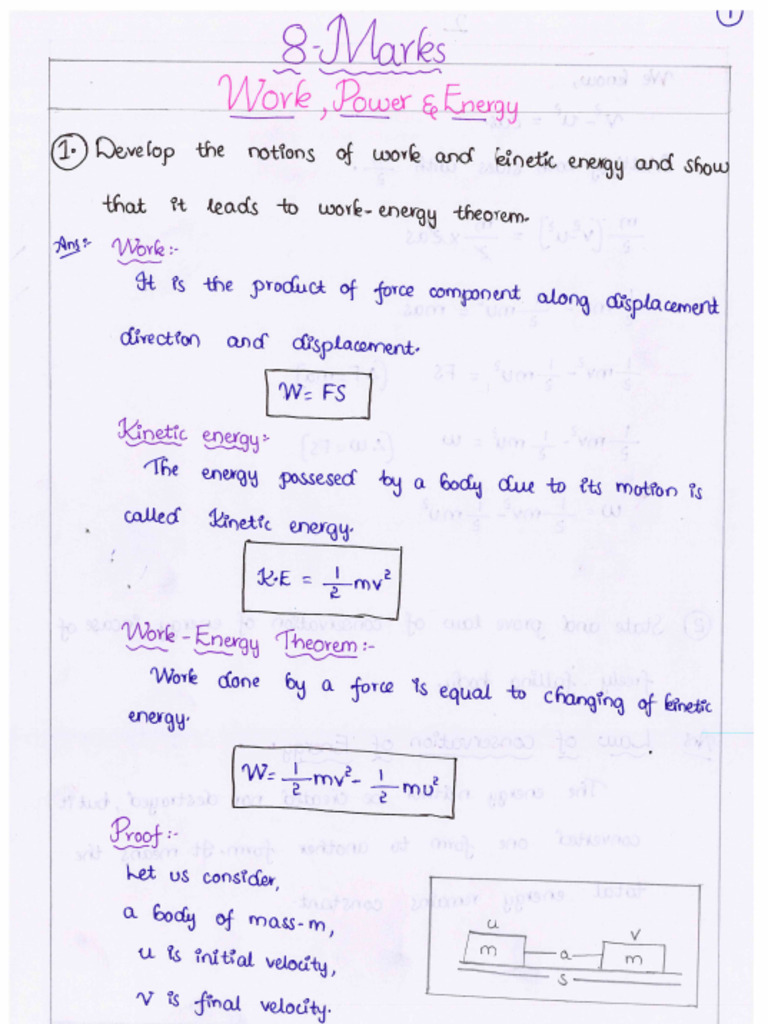 1
8-Marks
Work, Power & Energy
1. Develop the notions of work and kinetic energy and show
that it leads to work-energy theorem.
Ans:- Work:-
It is the product of force component along displacement
direction and displacement.
W = FS
Kinetic energy:-
The energy possesed by a body due to its motion is
called Kinetic energy.
K.E = 1/2 mv²
Work-Energy Theorem:-
Work done by a force is equal to changing of kinetic
energy.
W = 1/2 mv² - 1/2 mu²
Proof:-
Let us consider,
a body of mass-m,
u is initial velocity,
v is final velocity.
u
v
m
a
m
s